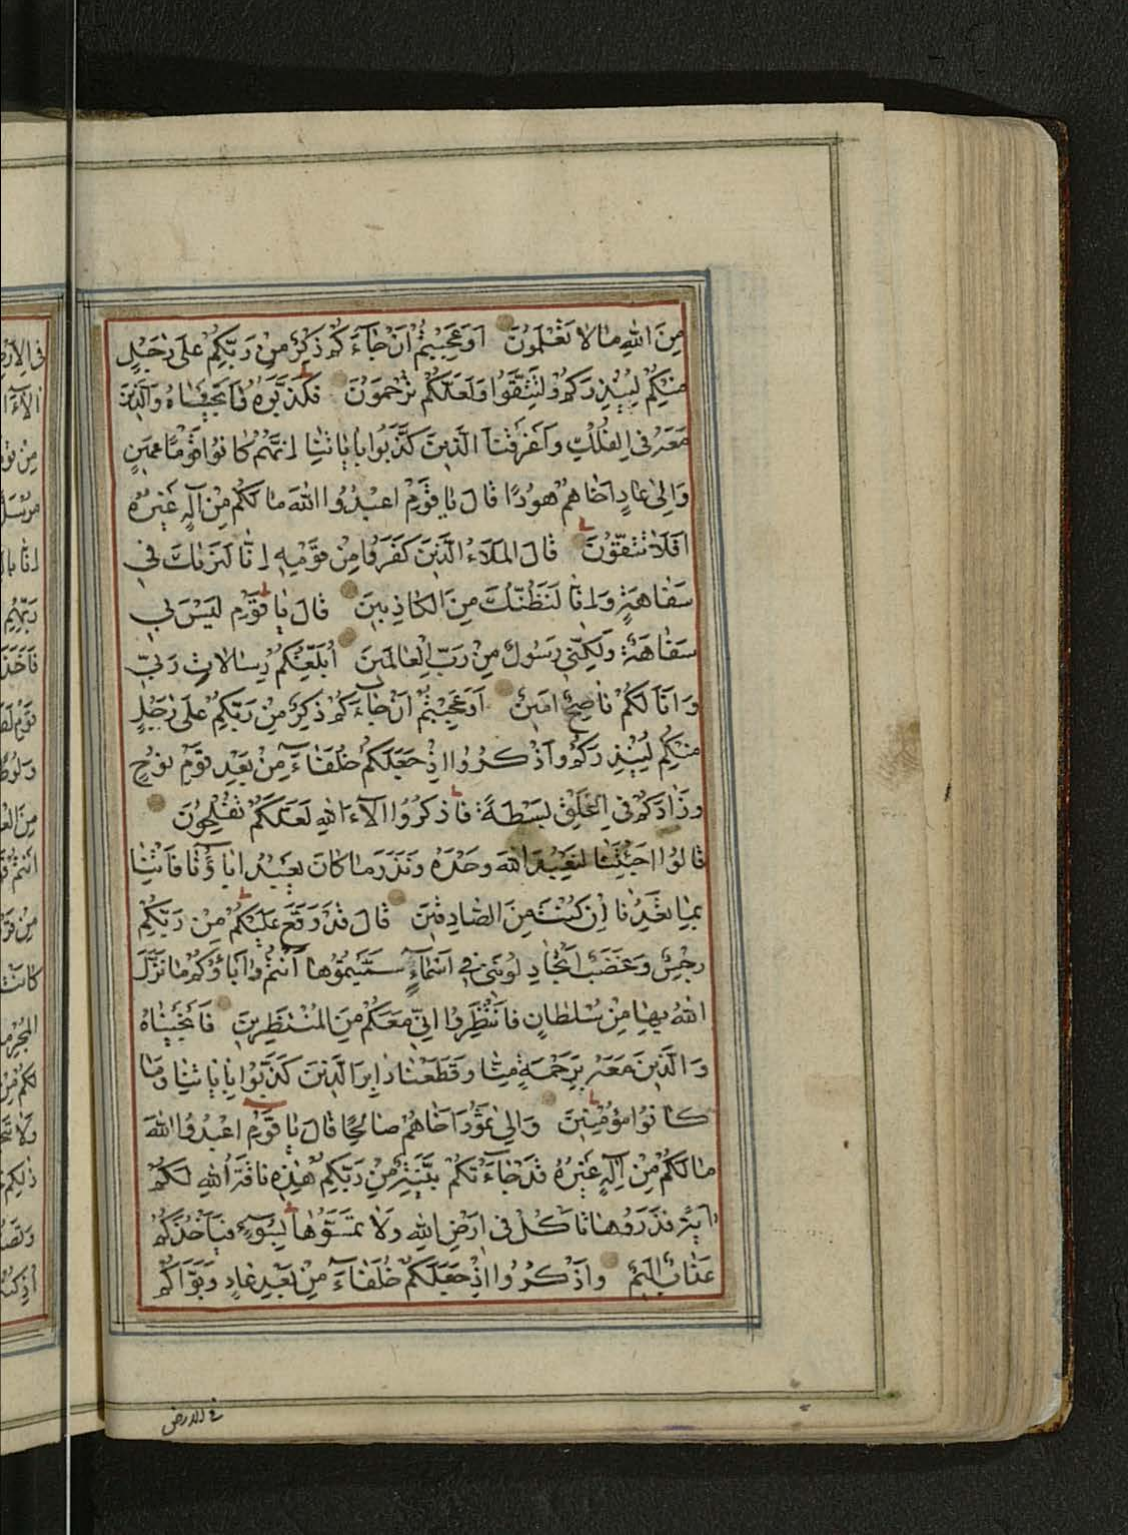 مِنَ اللهِ مَا لَا تَعْلَمُونَ اَوَعَجِبْتُمْ اَنْ جَاءَكُمْ ذِكْرٌ مِنْ رَبِّكُمْ عَلَى رَجُلٍ
مِنْكُمْ لِيُنْذِرَكُمْ وَلِتَتَّقُوا وَلَعَلَّكُمْ تُرْحَمُونَ فَكَذَّبُوهُ فَاَنْجَيْنَاهُ وَالَّذِينَ
مَعَهُ فِي الْفُلْكِ وَاَغْرَقْنَا الَّذِينَ كَذَّبُوا بِاٰيَاتِنَا اِنَّهُمْ كَانُوا قَوْمًا عَمِينَ
وَاِلَى عَادٍ اَخَاهُمْ هُودًا قَالَ يَا قَوْمِ اعْبُدُوا اللهَ مَا لَكُمْ مِنْ اِلٰهٍ غَيْرُهُ
اَفَلَا تَتَّقُونَ قَالَ الْمَلَاُ الَّذِينَ كَفَرُوا مِنْ قَوْمِهِ اِنَّا لَنَرَاكَ فِي
سَفَاهَةٍ وَاِنَّا لَنَظُنُّكَ مِنَ الْكَاذِبِينَ قَالَ يَا قَوْمِ لَيْسَ بِي
سَفَاهَةٌ وَلَكِنِّي رَسُولٌ مِنْ رَبِّ الْعَالَمِينَ اُبَلِّغُكُمْ رِسَالَاتِ رَبِّي
وَاَنَا لَكُمْ نَاصِحٌ اَمِينٌ اَوَعَجِبْتُمْ اَنْ جَاءَكُمْ ذِكْرٌ مِنْ رَبِّكُمْ عَلَى رَجُلٍ
مِنْكُمْ لِيُنْذِرَكُمْ وَاذْكُرُوا اِذْ جَعَلَكُمْ خُلَفَاءَ مِنْ بَعْدِ قَوْمِ نُوحٍ
وَزَادَكُمْ فِي الْخَلْقِ بَسْطَةً فَاذْكُرُوا اٰلَاءَ اللهِ لَعَلَّكُمْ تُفْلِحُونَ
قَالُوا اَجِئْتَنَا لِنَعْبُدَ اللهَ وَحْدَهُ وَنَذَرَ مَا كَانَ يَعْبُدُ اٰبَاؤُنَا فَأْتِنَا
بِمَا تَعِدُنَا اِنْ كُنْتَ مِنَ الصَّادِقِينَ قَالَ قَدْ وَقَعَ عَلَيْكُمْ مِنْ رَبِّكُمْ
رِجْسٌ وَغَضَبٌ اَتُجَادِلُونَنِي فِي اَسْمَاءٍ سَمَّيْتُمُوهَا اَنْتُمْ وَاٰبَاؤُكُمْ مَا نَزَّلَ
اللهُ بِهَا مِنْ سُلْطَانٍ فَانْتَظِرُوا اِنِّي مَعَكُمْ مِنَ الْمُنْتَظِرِينَ فَاَنْجَيْنَاهُ
وَالَّذِينَ مَعَهُ بِرَحْمَةٍ مِنَّا وَقَطَعْنَا دَابِرَ الَّذِينَ كَذَّبُوا بِاٰيَاتِنَا وَمَا
كَانُوا مُؤْمِنِينَ وَاِلَى ثَمُودَ اَخَاهُمْ صَالِحًا قَالَ يَا قَوْمِ اعْبُدُوا اللهَ
مَا لَكُمْ مِنْ اِلٰهٍ غَيْرُهُ قَدْ جَاءَتْكُمْ بَيِّنَةٌ مِنْ رَبِّكُمْ هٰذِهِ نَاقَةُ اللهِ لَكُمْ
اٰيَةً فَذَرُوهَا تَأْكُلْ فِي اَرْضِ اللهِ وَلَا تَمَسُّوهَا بِسُوءٍ فَيَأْخُذَكُمْ
عَذَابٌ اَلِيمٌ وَاذْكُرُوا اِذْ جَعَلَكُمْ خُلَفَاءَ مِنْ بَعْدِ عَادٍ وَبَوَّاَكُمْ
في الارض